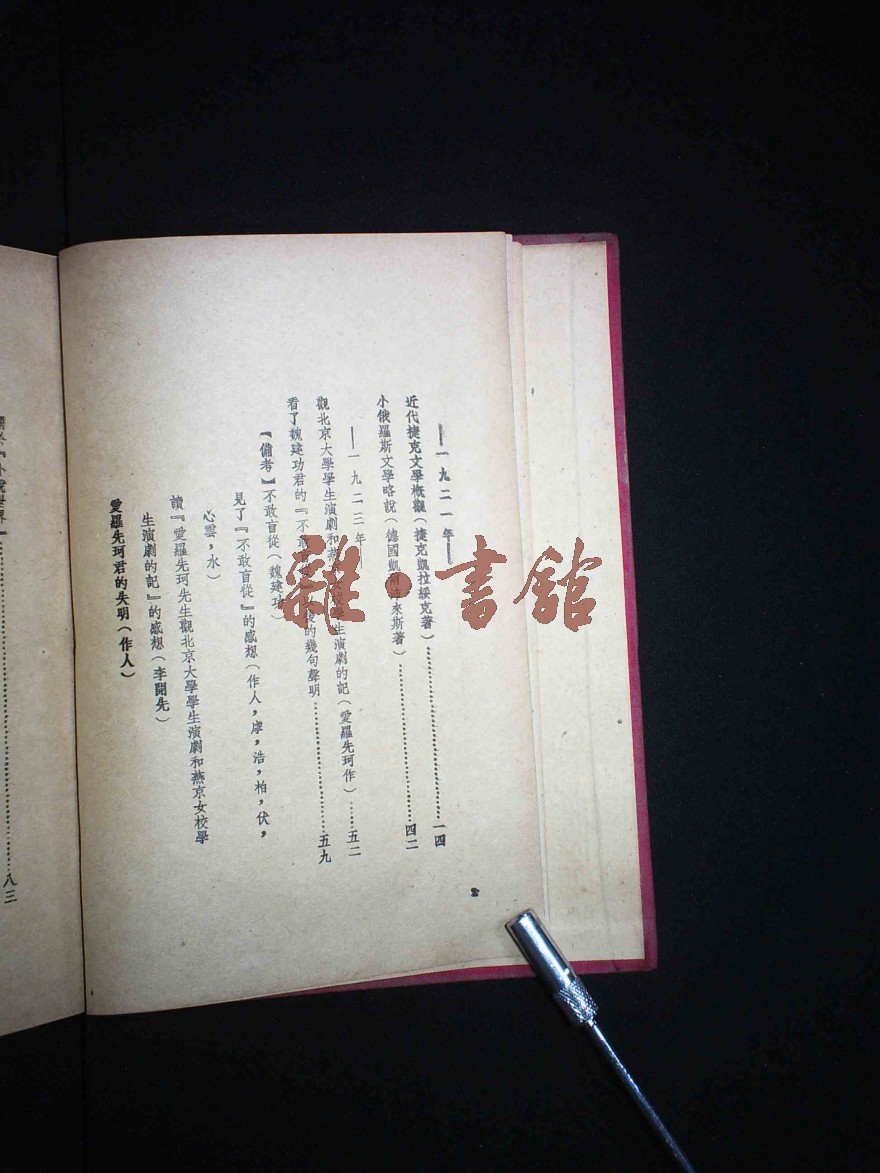 ——一九二一年——
近代捷克文學概觀（捷克凱拉綏克著）…………一四
小俄羅斯文學略說（德國凱爾沛來斯著）…………四二
——一九二三年——
觀北京大學學生演劇和燕京女校學生演劇的記（愛羅先珂作）……五二
看了魏建功君的『不敢盲從』以後的幾句聲明…………五九
【備考】不敢盲從（魏建功）
見了『不敢盲從』的感想（作人，虔，浩，柏，伏，
心雲，水）
讀『愛羅先珂先生觀北京大學學生演劇和燕京女校學
生演劇的記』的感想（李開先）
愛羅先珂君的失明（作人）
2
關於『小說世界』…………八三
雜·書館